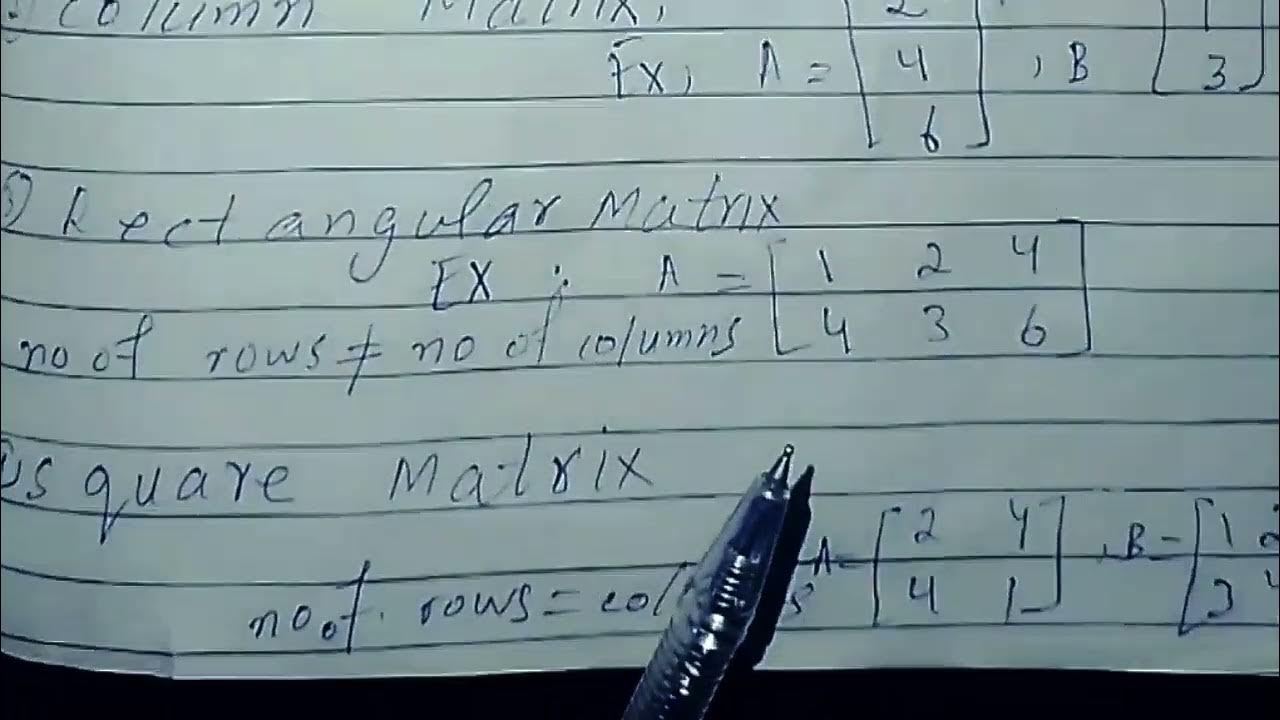 Column Matrix,
2
Ex, A = 4 , B
6 3
Rectangular Matrix
EX : A = 1 2 4
no of rows ≠ no of columns 4 3 6
square Matrix
A = 2 4 , B = 1 2
no of. rows = col 4 1 3 4